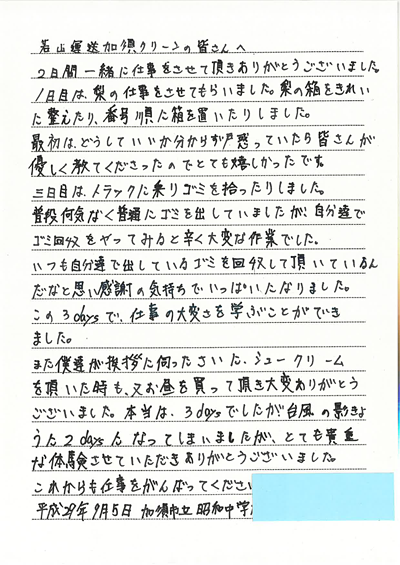 若山運送加須クリーンの皆さんへ
2日間一緒に仕事をさせて頂きありがとうございました。
1日目は、梨の仕事をさせてもらいました。梨の箱をきれい
に整えたり、番号順に箱を置いたりしました。
最初は、どうしていいか分からず戸惑っていたら皆さんが
優しく教てくださったのでとても嬉しかったです。
三日目は、トラックに乗りゴミを拾ったりしました。
普段何気なく普通にゴミを出していましたが、自分達で
ゴミ回収をやってみると辛く大変な作業でした。
いつも自分達で出しているゴミを回収して頂いているん
だなと思い感謝の気持ちでいっぱいになりました。
この3daysで、仕事の大変さを学ぶことができ
ました。
また僕達が挨拶に伺ったさいに、シュークリーム
を頂いた時も、又お昼を買って頂き大変ありがとう
ございました。本当は、3daysでしたが台風の影きょ
うで2daysになってしまいましたが、とても貴重
な体験させていただきありがとうございました。
これからも仕事をがんばってください
平成29年9月5日 加須市立 昭和中学